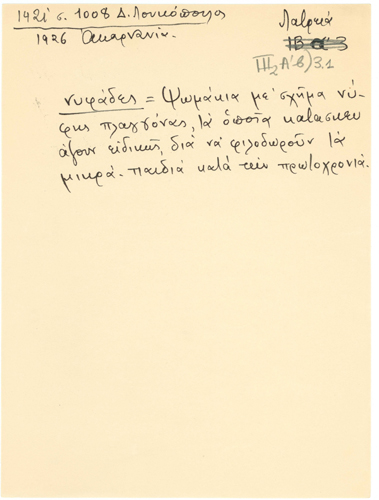 1421 σ. 1008 Δ. Λουκόπουλος
1926 Ἀκαρνανία.
Λατρεία
ΙΒ α 3
ΙΙΙ2 Α'β) 3.1
νυφάδες = Ψωμάκια με σχῆμα νύ-
φης πλαγγόνας, τά ὁποῖα κατασκευ
άζουν εἰδικῶς, διά νά φιλοδωροῦν τά
μικρά παιδιά κατά τήν πρωτοχρονιά.